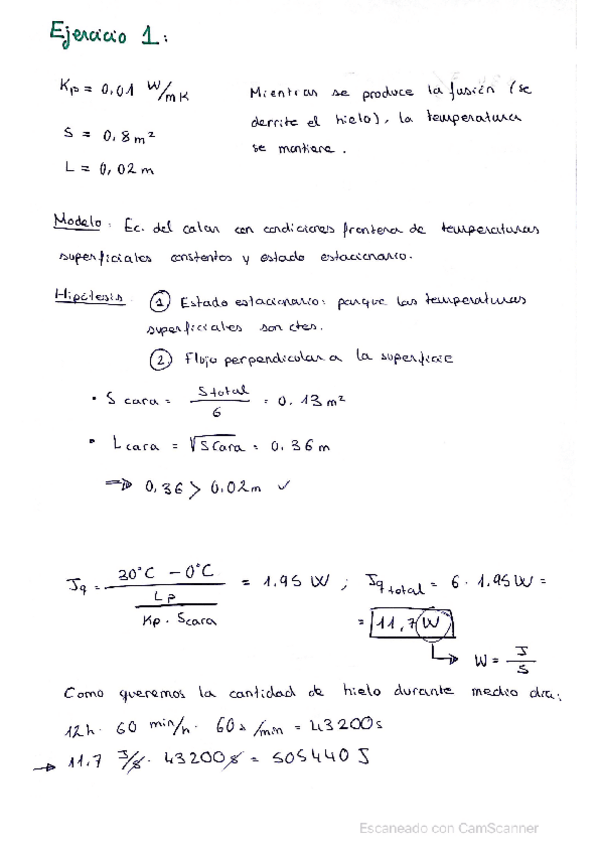 Ejercicio 1:
Kp = 0,01 W/mK
Mientras se produce la fusión (se
derrite el hielo), la temperatura
se mantiene.
S = 0,8 m²
L = 0,02 m
Modelo: Ec. del calor con condiciones frontera de temperaturas
superficiales constantes y estado estacionario.
Hipótesis ① Estado estacionario: porque las temperaturas
superficiales son ctes.
② Flujo perpendicular a la superficie
• S cara = S total / 6 = 0.13 m²
• L cara = √Scara = 0.36 m
⇒ 0,36 > 0.02m ✓
Jq = (30°C - 0°C) / (Lp / (Kp · Scara)) = 1.95 W ; Jq total = 6 · 1.95 W =
= 11,7 W
↳ W = J/s
Como queremos la cantidad de hielo durante medio día:
12h · 60 min/h · 60s/min = 43200s
→ 11.7 J/s · 43200s = 505440 J
Escaneado con CamScanner